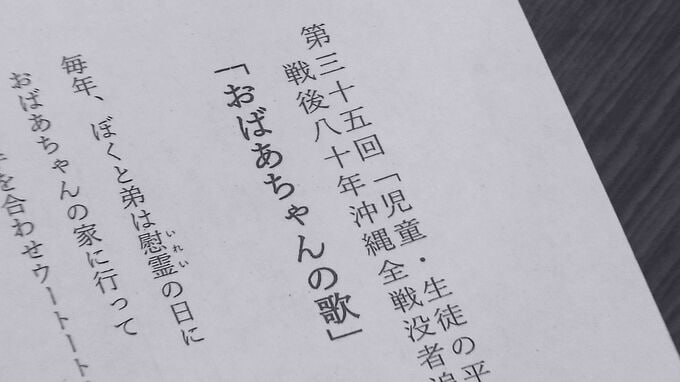 第三十五回「児童・生徒の平
戦後八十年沖縄全戦没者追
「おばあちゃんの歌」
毎年、ぼくと弟は慰霊の日に
いれい
おばあちゃんの家に行って
を合わせウートート